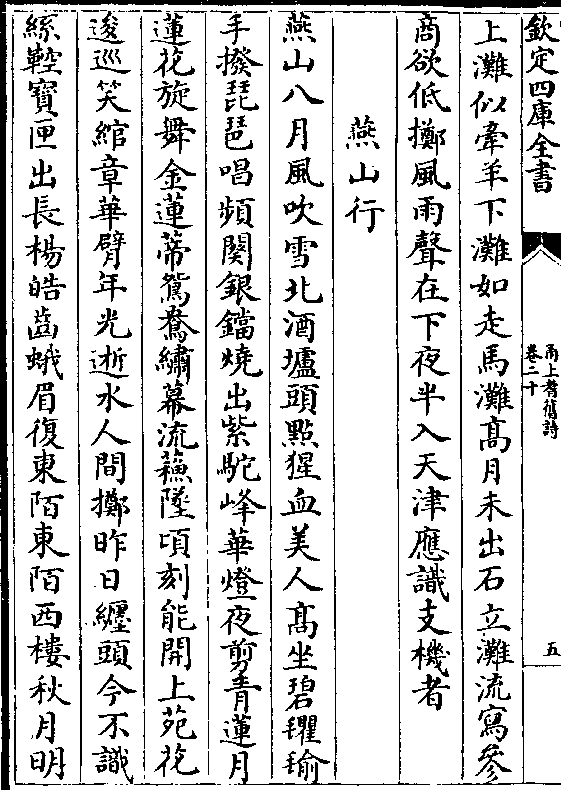 欽定四庫全書
甬上耆舊詩
卷二十
五
上灘似牽羊下灘如走馬灘高月未出石立灘流寫參
商欲低擲風雨聲在下夜半入天津應識支機者
燕山行
燕山八月風吹雪北酒壚頭點猩血美人高坐碧氍毹
手撥琵琶唱頻闋銀鐺燒出紫駝峰華燈夜剪青蓮月
蓮花旋舞金蓮蒂鴛鴦繡幕流蘓墜頃刻能開上苑花
逡巡笑綰章華臂年光逝水人間擲昨日纒頭今不識
絲鞚寶匣出長楊皓齒蛾眉復東陌東陌西樓秋月明